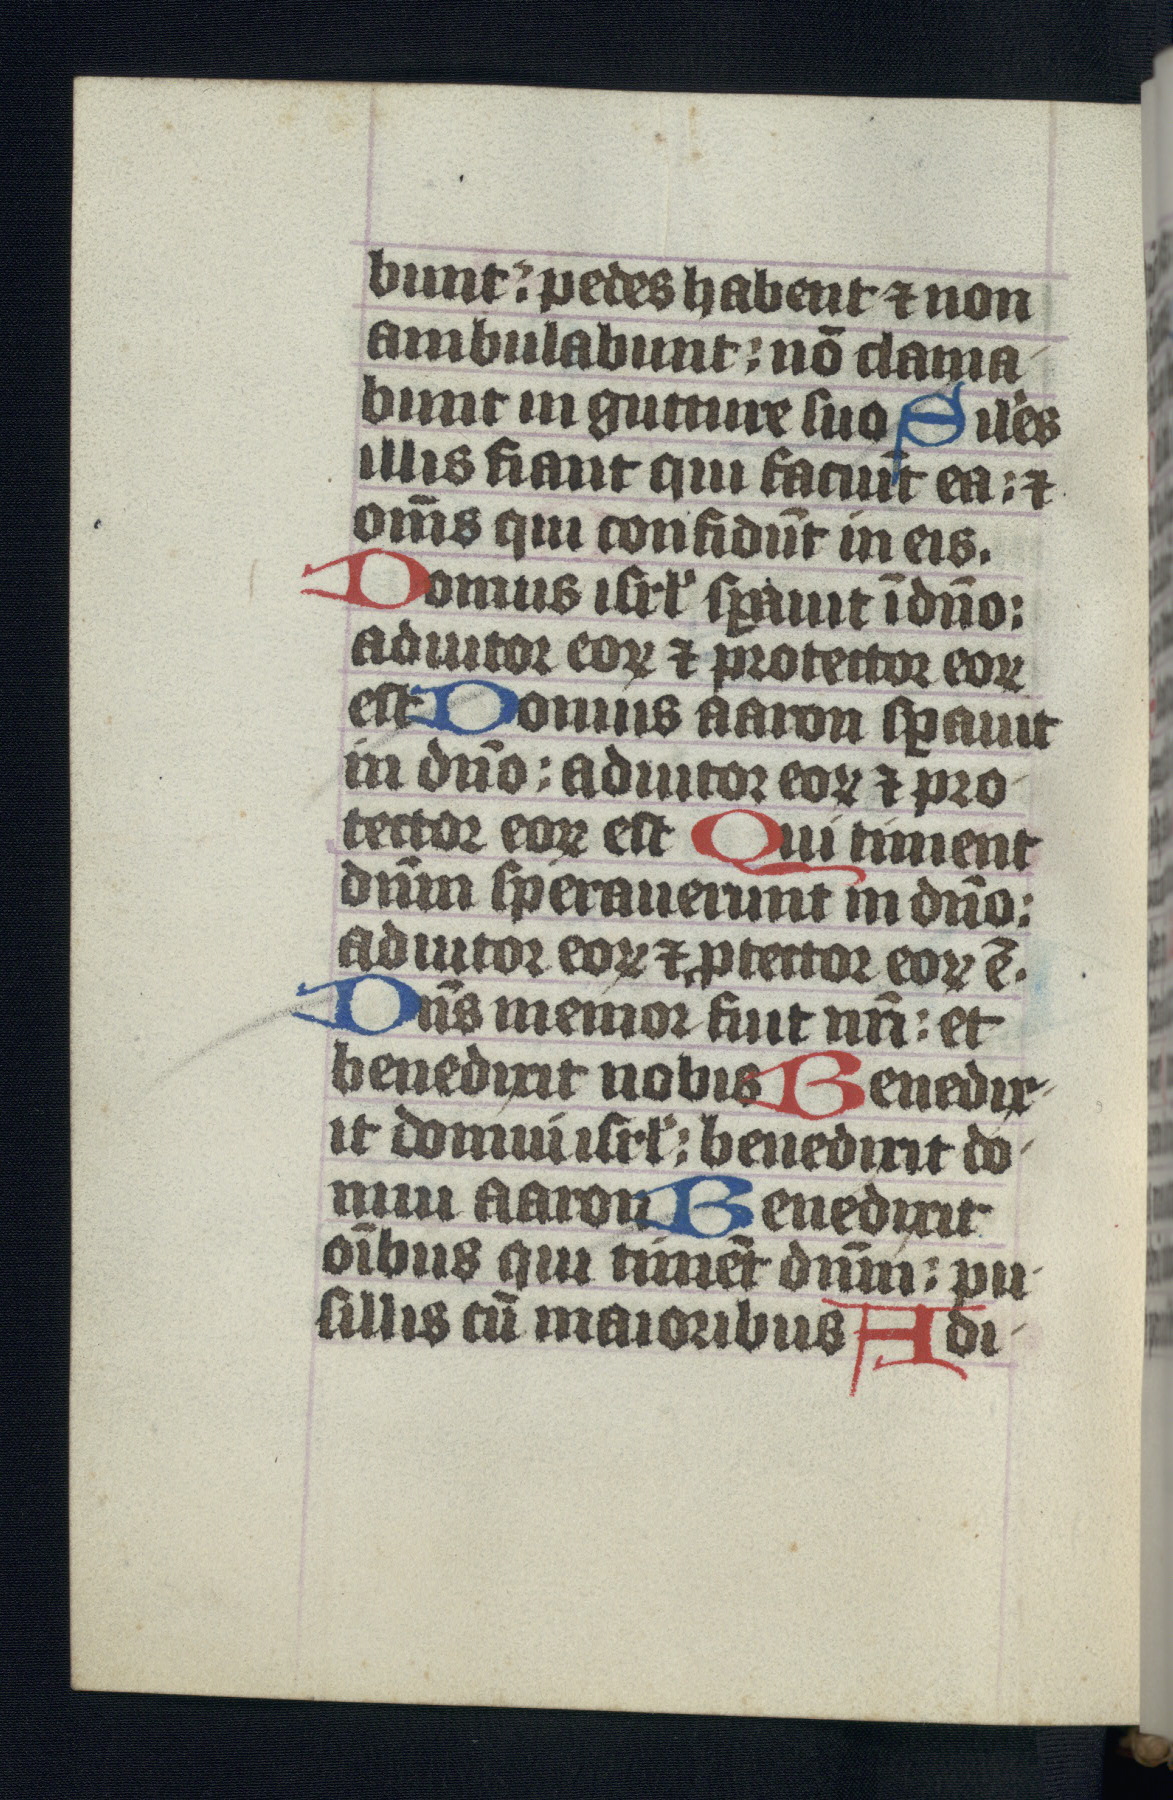 bunt: pedes habent ⁊ non
ambulabunt: nō clama-
bunt in gutture suo Siles
illis fiant qui faciūt ea: ⁊
om̄s qui confidūt in eis.
Domus isrl' spauit ī dn̄o:
adiutor eoꝝ ⁊ protector eoꝝ
est Domus aaron spauit
in dn̄o: adiutor eoꝝ ⁊ pro-
tector eoꝝ est Qui timent
dn̄m sperauerunt in dn̄o:
adiutor eoꝝ ⁊ ꝓtector eoꝝ ē.
Dn̄s memor fuit nr̄i: et
benedixit nobis Benedix-
it domui isrl': benedixit do-
mui aaron Benedixit
oībus qui timēt dn̄m: pu-
sillis cū maioribus Adi-